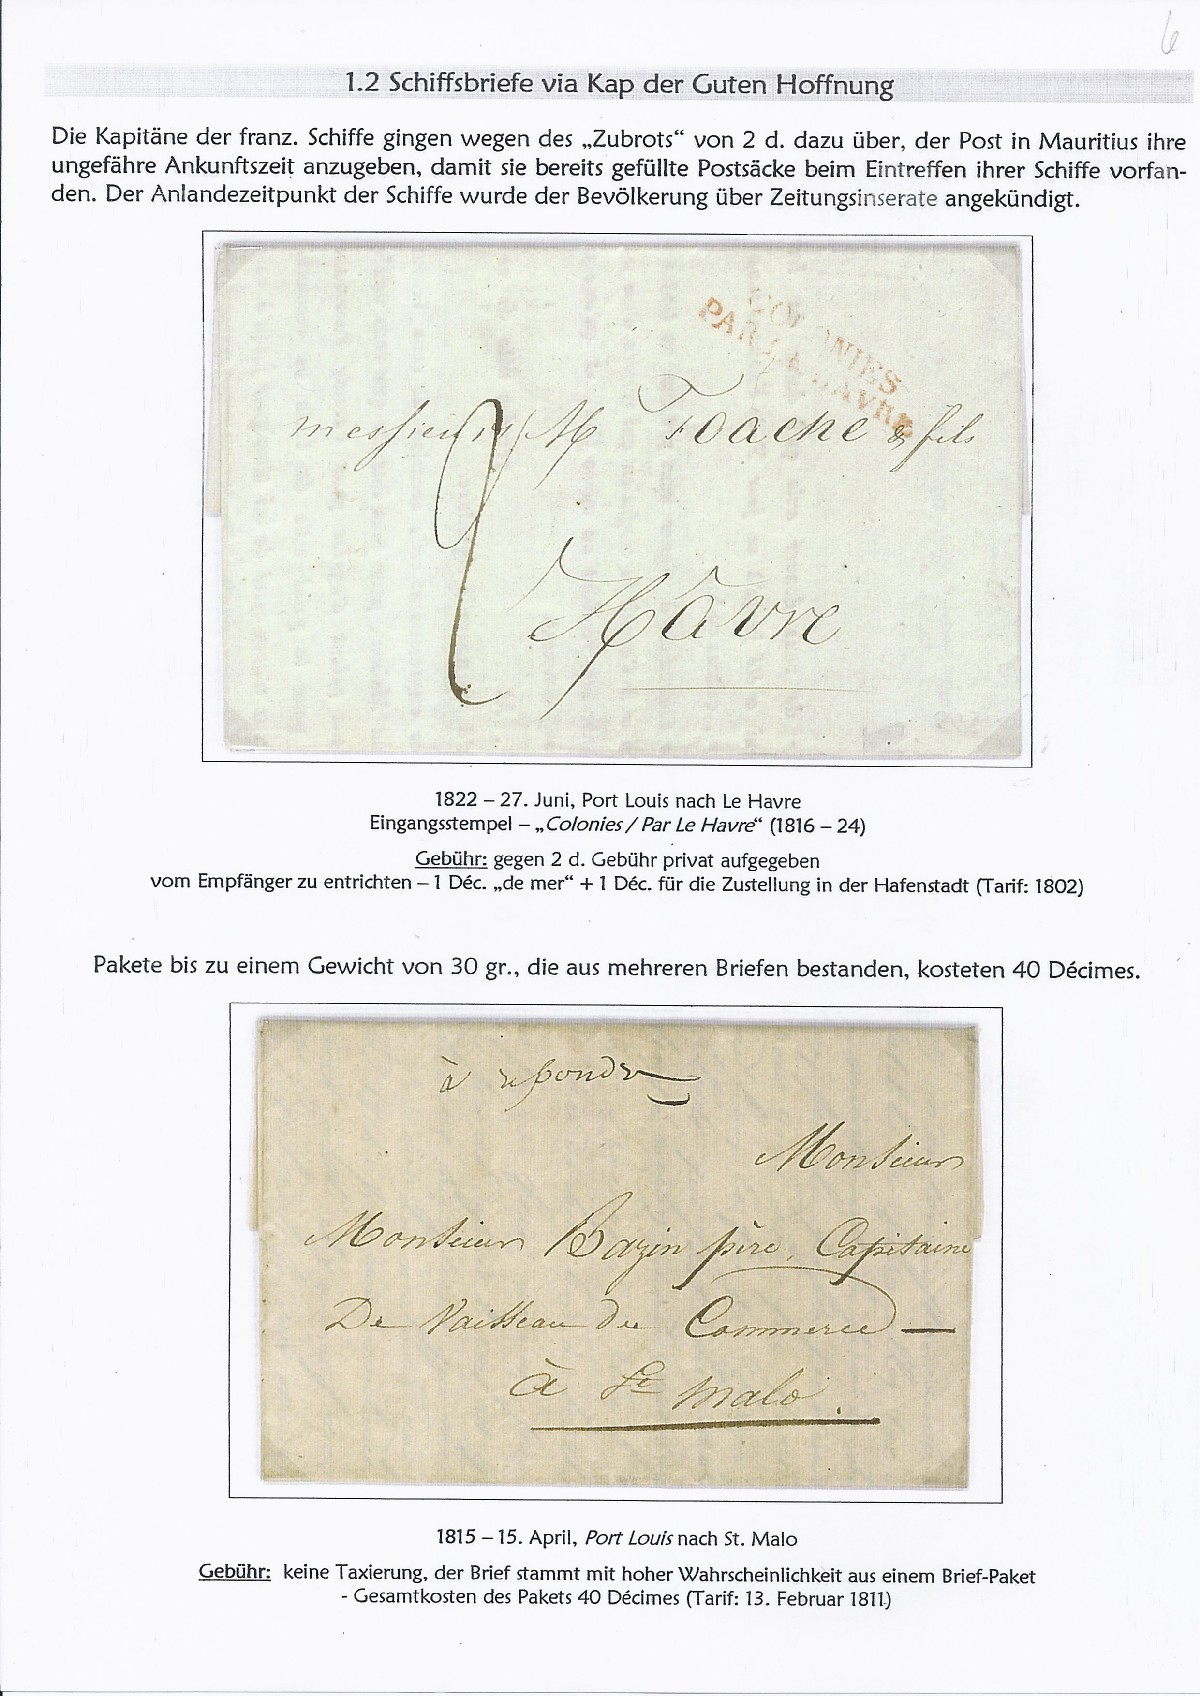 6
1.2 Schiffsbriefe via Kap der Guten Hoffnung
Die Kapitäne der franz. Schiffe gingen wegen des „Zubrots“ von 2 d. dazu über, der Post in Mauritius ihre
ungefähre Ankunftszeit anzugeben, damit sie bereits gefüllte Postsäcke beim Eintreffen ihrer Schiffe vorfan-
den. Der Anlandezeitpunkt der Schiffe wurde der Bevölkerung über Zeitungsinserate angekündigt.
COLONIES
PAR LE HAVRE
messieurs M Foache & fils
2
Hâvre
1822 – 27. Juni, Port Louis nach Le Havre
Eingangsstempel – „Colonies / Par Le Havre“ (1816 – 24)
Gebühr: gegen 2 d. Gebühr privat aufgegeben
vom Empfänger zu entrichten – 1 Déc. „de mer“ + 1 Déc. für die Zustellung in der Hafenstadt (Tarif: 1802)
Pakete bis zu einem Gewicht von 30 gr., die aus mehreren Briefen bestanden, kosteten 40 Décimes.
à repondre
Monsieur
Monsieur Bazin père, Capitaine
De Vaisseau du Commerce —
à St malo.
1815 – 15. April, Port Louis nach St. Malo
Gebühr: keine Taxierung, der Brief stammt mit hoher Wahrscheinlichkeit aus einem Brief-Paket
- Gesamtkosten des Pakets 40 Décimes (Tarif: 13. Februar 1811)